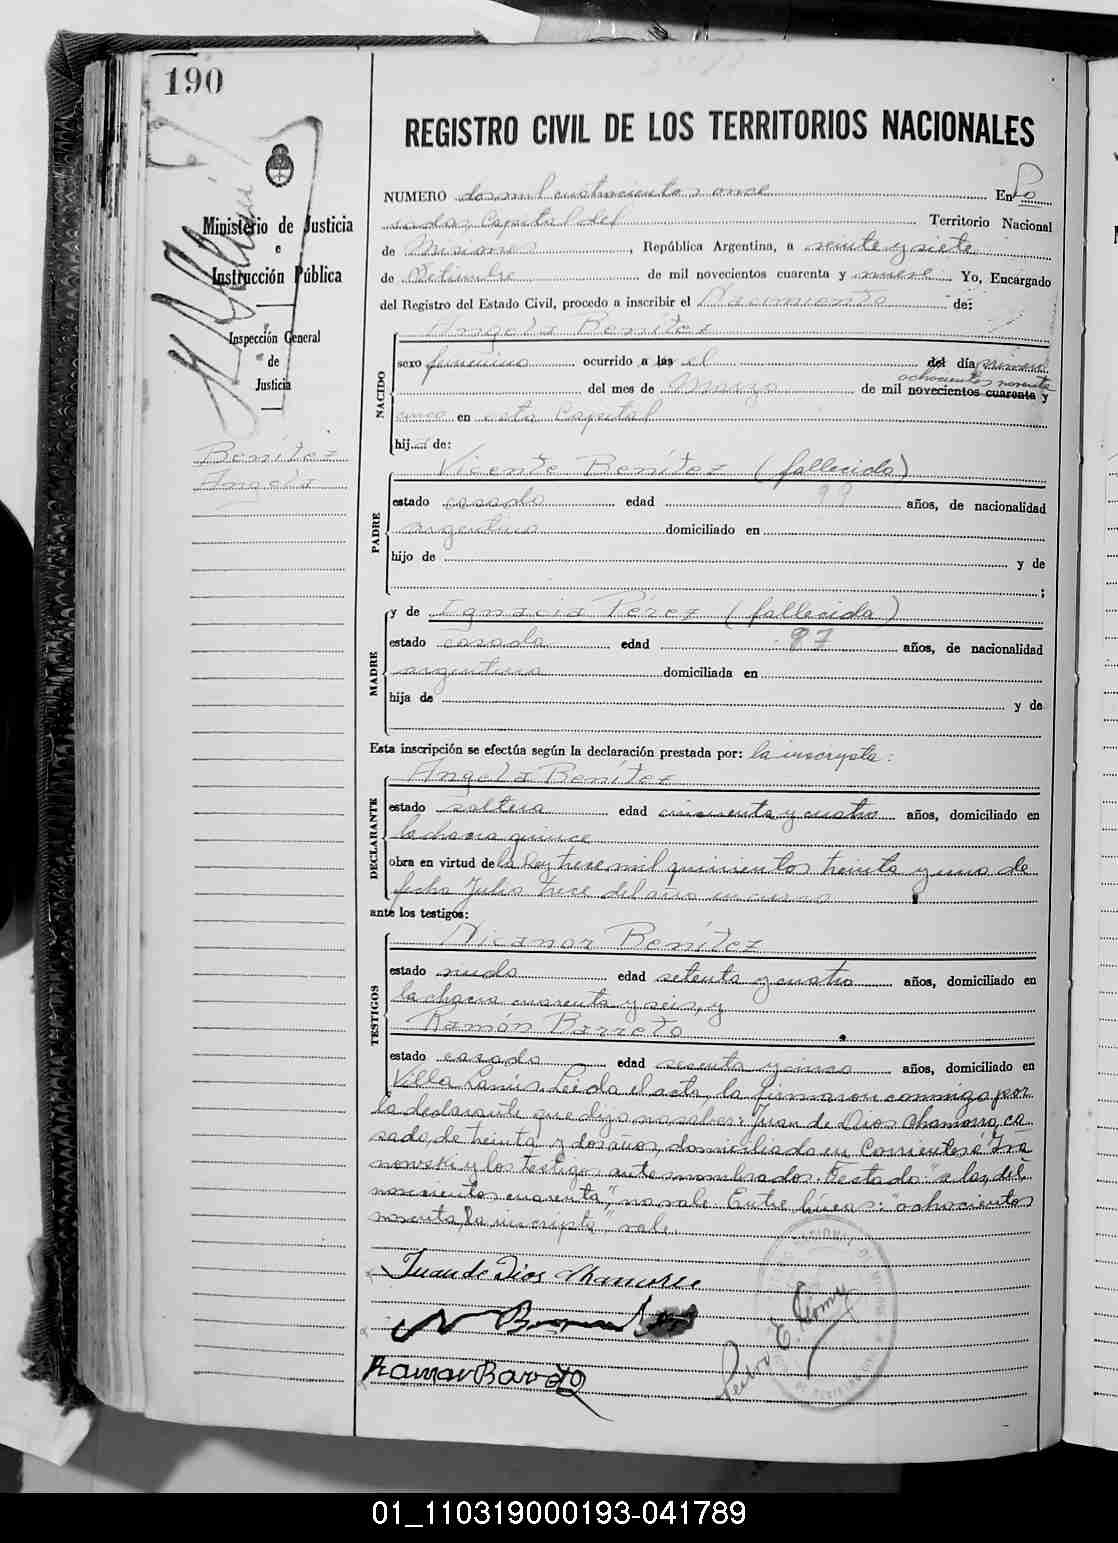 190
REGISTRO CIVIL DE LOS TERRITORIOS NACIONALES
Ministerio de Justicia
e
Instrucción Pública
Inspección General
de
Justicia
Benítez
Angela
NUMERO dos mil cuatrocientos once En Po
sadas, Capital del Territorio Nacional
de Misiones, República Argentina, a veinte y siete
de Setiembre de mil novecientos cuarenta y nueve Yo, Encargado
del Registro del Estado Civil, procedo a inscribir el Nacimiento de:
Angela Benítez
NACIDO
sexo femenino ocurrido a las el del día primero
ochocientos noventa
del mes de Marzo de mil novecientos cuarenta y
cinco en esta Capital
hija de:
Vicente Benítez (fallecido)
PADRE
estado casado edad 99 años, de nacionalidad
argentino domiciliado en
hijo de y de
;
y de Ignacia Pérez (fallecida)
MADRE
estado casada edad 87 años, de nacionalidad
argentina domiciliada en
hija de y de
Esta inscripción se efectúa según la declaración prestada por: la inscripta:
Angela Benítez
DECLARANTE
estado soltera edad cincuenta y cuatro años, domiciliado en
la chacra quince
obra en virtud de la Ley trece mil quinientos treinta y uno de
fecha Julio trece del año en curso
ante los testigos:
Nicanor Benítez
TESTIGOS
estado viudo edad setenta y cuatro años, domiciliado en
la chacra cuarenta y seis, y
Ramón Barreto
estado casado edad sesenta y cinco años, domiciliado en
Villa Lanús. Leída el acta, la firmaron conmigo por
la declarante que dijo no saber: Juan de Dios Chamorro, ca
sado, de treinta y dos años, domiciliado en Corrientes e Ira
y los testigos antes nombrados. Testado: "a las, del,
novecientos cuarenta," no vale. Entre líneas: "ochocientos
noventa, la inscripta" vale.
Juan de Dios Chamorro
N Benitez
Ramon Barreto
01_110319000193-041789